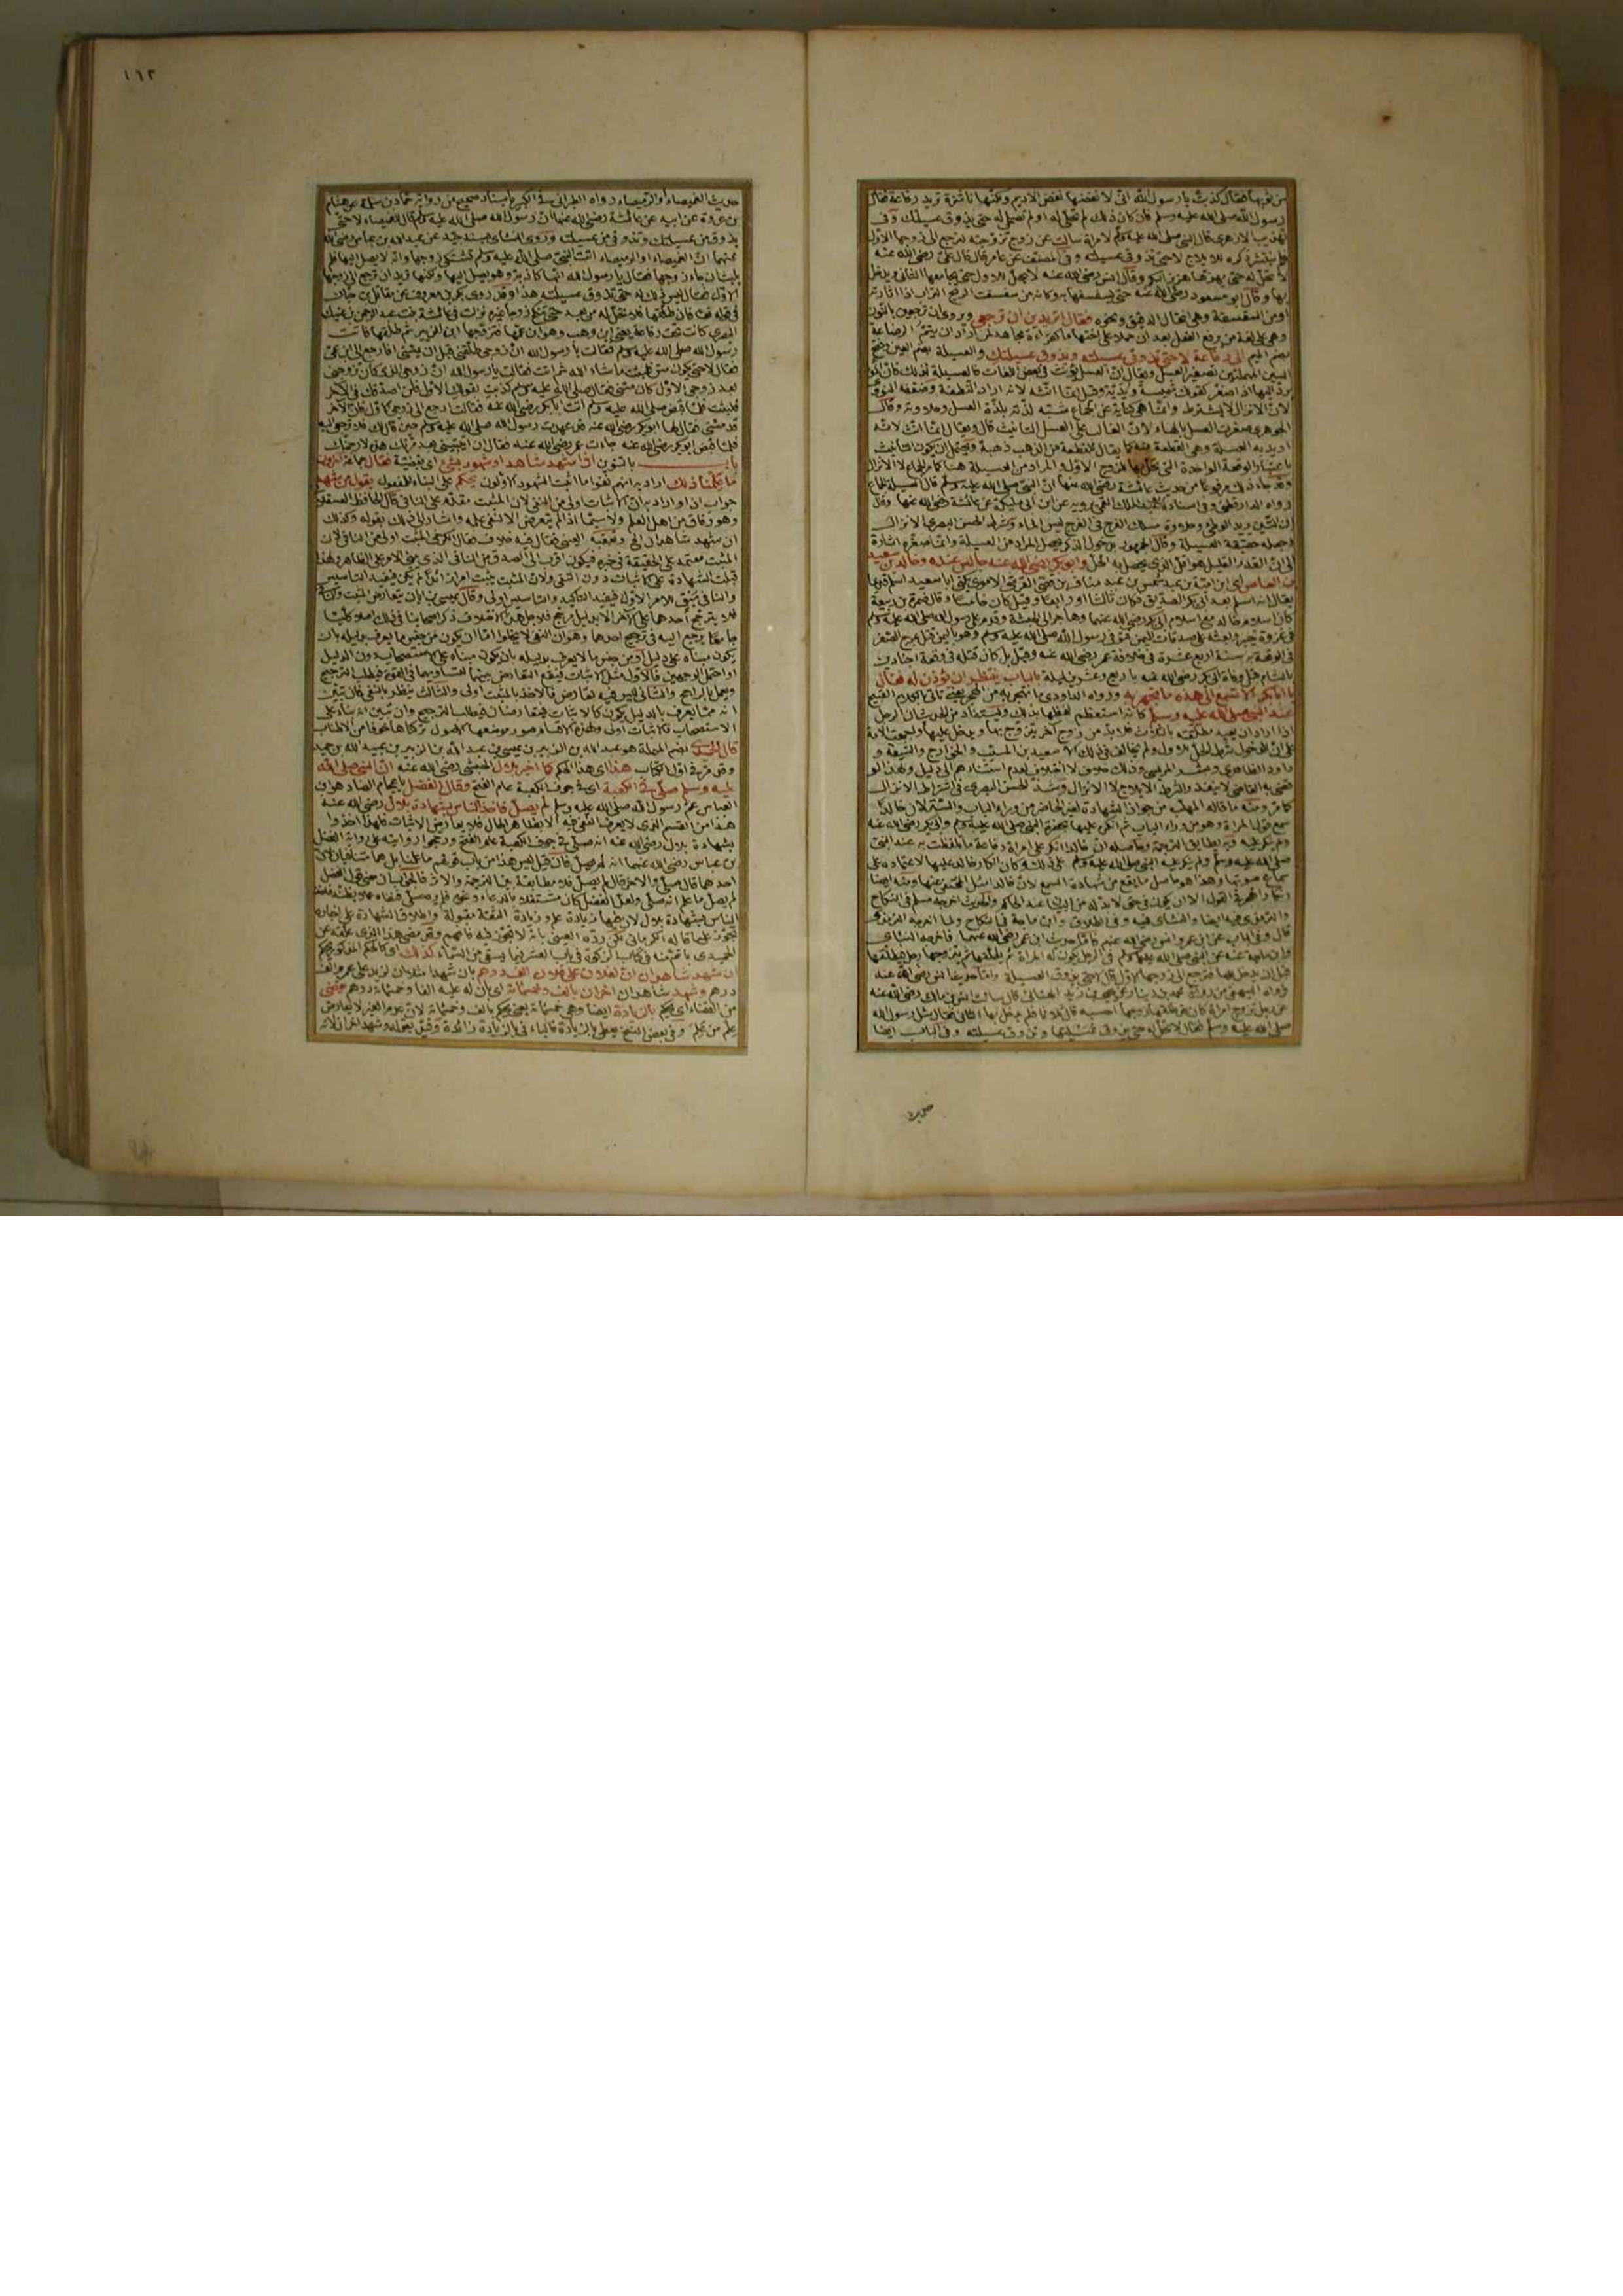 ١٦٢
من ثوبها فقال كذبت يا رسول الله انى لا نفضها نفض الاديم ولكنها ناشزة تريد رفاعة فقال
رسول الله صلى الله عليه وسلم فان كان ذلك لم تحلى له او لم تصلحى له حتى يذوق عسيلتك وفى
تهذيب الازهرى قال النبى صلى الله عليه وسلم لامرأة سألته عن زوج تزوجته لترجع الى زوجها الاول
فلم ينتشر ذكره للايلاج لا حتى تذوقى عسيلته وفى المصنف عن عامر قال قال على رضى الله عنه
لا تحل له حتى يهزها هزيز البكر وقال انس رضى الله عنه لا تحل للاول حتى يجامعها الثانى ويدخل
بها وقال ابو مسعود رضى الله عنه حتى يسفسفها به وكانه من سفسفت الريح التراب اذا اثارته
او من السفسفة وهى انتخال الدقيق ونحوه فقال اتريدين ان ترجعى ويروى ان ترجعين بالنون
وهى على لغة من يرفع الفعل بعد ان حملا على اختها ما كقراءة مجاهد لمن اراد ان يتم الرضاعة
بضم الميم الى رفاعة لا حتى تذوقى عسيلته ويذوق عسيلتك والعسيلة بضم العين وفتح
السين المهملتين تصغير العسل ويقال ان العسل يؤنث فى بعض اللغات كالعسيلة
لان الانزال لا يشترط وانما هى كناية عن الجماع شبه لذته بلذة العسل وحلاوته وقال
الجوهرى صغرت العسل بالهاء لان الغالب على العسل التأنيث قال ويقال انما انث لانه
اريد به العسلة وهى القطعة منه كما يقال للقطعة من الذهب ذهبة ويحتمل ان يكون التأنيث
باعتبار الوقعة الواحدة التى تحل بها للزوج الاول والمراد من العسيلة هنا الجماع لا الانزال
وقد جاء ذلك مرفوعا من حديث عائشة رضى الله عنها ان النبى صلى الله عليه وسلم قال العسيلة الجماع
رواه الدارقطنى وفى اسناده ابو عبد الملك القمى يرويه عن ابن ابى مليكة عن عائشة رضى الله عنها وقال
وجعله حقيقة العسيلة وقال الجمهور بدخول الذكر يحصل المراد من العسيلة وانما صغره اشارة
الى ان القدر القليل هو اقل الذى يحصل به الحل وابو بكر رضى الله عنه جالس عنده وخالد بن سعيد
بن العاص اى ابن امية بن عبد شمس بن عبد مناف بن قصى القرشى الاموى يكنى ابا سعيد اسلم قديما
يقال انه اسلم بعد ابى بكر الصديق فكان ثالثا او رابعا وقيل كان خامسا وقال ضمرة بن ربيعة
كان اسلام خالد مع اسلام ابى بكر رضى الله عنهما وهاجر الى الحبشة وقدم على رسول الله صلى الله عليه وسلم
فى غزوة خيبر وبعثه على صدقات اليمن فتوفى رسول الله صلى الله عليه وسلم وهو باليمن قتل بمرج الصفر
فى الوقعة به سنة اربع عشرة فى خلافة عمر رضى الله عنه وقيل بل كان قتله فى وقعة اجنادين
بالشام قبل وفاة ابى بكر رضى الله عنه باربع وعشرين ليلة بالباب ينتظر ان يؤذن له فقال
يا ابا بكر الا تسمع الى هذه ما تجهر به ورواه الداودى ما تهجر به من الهجر يعنى تأتى بالكلام القبيح
عند النبى صلى الله عليه وسلم كانه استعظم لفظها بذلك ويستفاد من الحديث ان الرجل
اذا اراد ان يعيد مطلقته بالثلاث فلا بد من زوج آخر يتزوج بها ويدخل عليها واجمعت الامة
على ان الدخول شرط الحل للاول ولم يخالف فى ذلك الا سعيد بن المسيب والخوارج والشيعة و
داود الظاهرى وبشر المريسى وذلك خلاف لا اختلاف لعدم استنادهم الى دليل ولهذا لو
قضى به القاضى لا ينفذ والشرط الايلاج لا الانزال وشذ الحسن البصرى فى اشتراط الانزال
كما مر ومنه ما قاله المهلب من جواز الشهادة لغير الحاضر من وراء الباب والستر لان خالدا
سمع قول المرأة وهو من وراء الباب ثم انكر عليها بحضرة النبى صلى الله عليه وسلم وابى بكر رضى الله عنه
ولم ينكر عليه وبه يطابق الترجمة وحاصله ان خالدا انكر على امرأة رفاعة ما تلفظت به عند النبى
صلى الله عليه وسلم ولم ينكر عليه النبى صلى الله عليه وسلم على ذلك وكان انكار خالد عليها لاعتماده على
سماع صوتها وهذا هو حاصل ما يقع من شهادة السمع
والترمذى فيه ايضا والنسائى فيه وفى الطلاق وابن ماجة فى النكاح
قبل ان يدخل بها فترجع الى زوجها الاول قال لا حتى يذوق العسيلة واما حديث انس رضى الله عنه
فرواه البيهقى من رواية محمد بن دينار عن يحيى بن يزيد الهنائى قال سألت انس بن مالك رضى الله عنه
صلى الله عليه وسلم فقال لا تحل له حتى يذوق عسيلتها وتذوق عسيلته وفى الباب ايضا
حديث
حديث الغميصاء او الرميصاء رواه الطبرانى فى الكبير باسناد صحيح من رواية حماد بن سلمة عن هشام
بن عروة عن ابيه عن عائشة رضى الله عنها ان رسول الله صلى الله عليه وسلم قال للغميصاء لا حتى
يذوق من عسيلتك وتذوقى من عسيلته وروى النسائى بسند جيد عن عبيد الله بن عباس رضى الله
عنهما ان الغميصاء او الرميصاء اتت النبى صلى الله عليه وسلم تشتكى زوجها وانه لا يصل اليها فلم
يلبث ان جاء زوجها فقال يا رسول الله انها كاذبة وهو يصل اليها ولكنها تريد ان ترجع الى زوجها
الاول فقال ليس ذلك لها حتى تذوق عسيلته هذا وقد روى بكير بن معروف عن مقاتل بن حيان
فى قوله تعالى فان طلقها فلا تحل له من بعد حتى تنكح زوجا غيره نزلت فى عائشة بنت عبد الرحمن بن عتيك
النضرى كانت تحت رفاعة يعنى ابن وهب وهو ابن عمها فتزوجها ابن الزبير ثم طلقها فاتت
رسول الله صلى الله عليه وسلم فقالت يا رسول الله ان زوجى طلقنى قبل ان يمسنى افارجع الى ابن عمى
فقال لا حتى يكون مس فلبثت ما شاء الله ثم اتت فقالت يا رسول الله ان زوجى الذى كان تزوجنى
بعد زوجى الاول كان مسنى فقال صلى الله عليه وسلم كذبت بقولك الاول فلن اصدقك فى الآخر
فلبثت فلما قبض صلى الله عليه وسلم اتت ابا بكر رضى الله عنه فقالت ارجع الى زوجى الاول فان الآخر
قد مسنى فقال لها ابو بكر رضى الله عنه قد عهدت رسول الله صلى الله عليه وسلم حين قال لك فلا ترجعى اليه
فلما قبض ابو بكر رضى الله عنه جاءت عمر رضى الله عنه فقال ان اتيتنى بعد مرتك هذه لارجمنك
باب بالتنوين اذا شهد شاهد او شهود بشئ اى بقضية فقال جماعة آخرون
ما علمنا ذلك اراد به انهم نفوا ما اثبت الشهود الاولون يحكم على البناء للمفعول بقول من شهد
جواب اذا واراد به ان الاثبات اولى من النفى لان المثبت مقدم على النافى قال الحافظ العسقلانى
وهو وفاق من اهل العلم ولا سيما اذا لم يتعرض الا لنفى علمه واشار الى ذلك بقوله وكذلك
ان شهد شاهدان الخ وتعقبه العينى فقال فيه خلاف فقال الكرخى المثبت اولى من النافى لان
المثبت معتمد على الحقيقة فى خبره فيكون اقرب الى الصدق من النافى الذى يبنى الامر على الظاهر ولهذا
قبلت الشهادة على الاثبات دون النفى ولان المثبت يثبت امرا زائدا لم يكن فيفيد التأسيس
والنافى مبقى الامر الاول فيفيد التأكيد والتأسيس اولى وقال عيسى بن ابان يتعارض المثبت والنافى
فلا يترجح احدهما على الآخر الا بدليل مرجح فلاجل هذا الاختلاف ذكر اصحابنا فى ذلك اصلا كليا
جامعا يرجع اليه فى ترجيح احدهما وهو ان النفى لا يخلو اما ان يكون من جنس ما يعرف بدليله بان
يكون مبناه على دليل او من جنس ما لا يعرف بدليله بان يكون مبناه على الاستصحاب دون الدليل
او احتمل الوجهين فالاول مثل الاثبات فيقع التعارض بينهما لتساويهما فى القوة فيطلب الترجيح
ويعمل بالراجح والثانى ليس فيه تعارض فالاخذ بالمثبت اولى والثالث ينظر بالنفى فان تبين
انه مما يعرف بالدليل يكون كالاثبات فيتعارضان فيطلب الترجيح وان تبين انه بناء على
الاستصحاب فالاثبات اولى ولهذه الاقسام صور موضعها الاصول تركناها خوفا من الاطناب
قال الحميدى بضم المهملة هو عبد الله بن الزبير بن عيسى بن عبد الله بن الزبير بن عبيد الله بن حميد
وقد مر فى اول الكتاب هذا اى هذا الحكم كما اخبر بلال الحبشى رضى الله عنه ان النبى صلى الله
عليه وسلم صلى فى الكعبة اى فى جوف الكعبة عام الفتح وقال الفضل باعجام الضاد هو ابن
العباس عم رسول الله صلى الله عليه وسلم لم يصل فاخذ الناس بشهادة بلال رضى الله عنه
هذا من القسم الذى لا يعرف النفى فيه الا بظاهر الحال فلا يعارض الاثبات فلهذا اخذوا
بشهادة بلال رضى الله عنه انه صلى فى جوف الكعبة عام الفتح ورجحوا روايته على رواية الفضل
بن عباس رضى الله عنهما انه لم يصل فان قيل ليس هذا من باب ما علمنا بل هما متنافيان لان
احدهما قال صلى والآخر قال لم يصل فلا مطابقة بين الترجمة والاثر فالجواب ان معنى قول الفضل
لم يصل ما علم انه صلى ولعل الفضل كان مشتغلا بالدعاء ونحوه فلم يره صلى فنفاه عملا بظنه فاخذ
الناس بشهادة بلال لان فيها زيادة علم وزيادة الثقة مقبولة واطلاق الشهادة على اخباره
الحميدى بما تقدم فى كتاب الزكوة فى باب العشر فيما يسقى من السماء كذلك اى كالحكم المذكور يحكم
ان شهد شاهدان ان لفلان على فلان الف درهم بان شهدا مثلا ان لزيد على عمرو الف
درهم وشهد شاهدان آخران بالف وخمسمائة اى بان له عليه الفا وخمسمائة درهم يقضى
من القضاء اى يحكم بالزيادة ايضا وهى خمسمائة يعنى يحكم بالف وخمسمائة لان عدم علم الغير لا يعارض
علم من علم وفى بعض النسخ يعطى بالزيادة فالباء فى بالزيادة زائدة